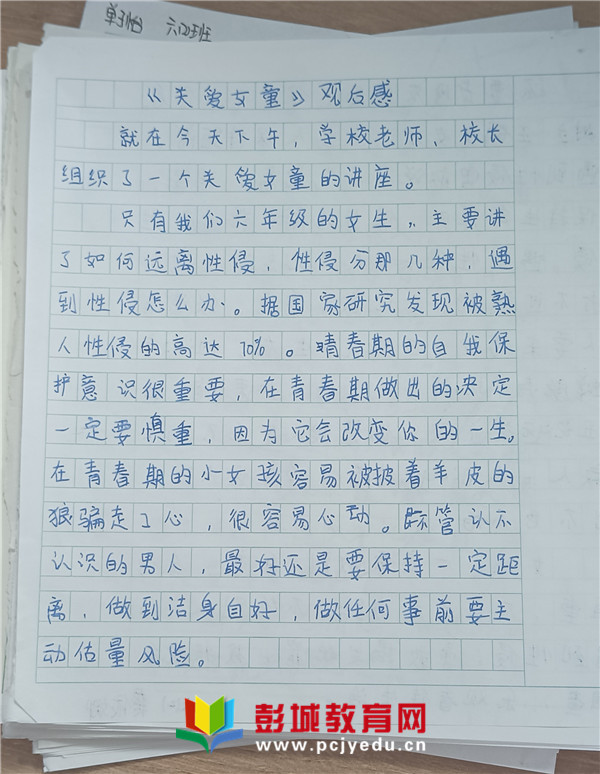 单子怡 六(2)班
《关爱女童》观后感
就在今天下午，学校老师、校长
组织了一个关爱女童的讲座。
只有我们六年级的女生，主要讲
了如何远离性侵，性侵分那几种，遇
到性侵怎么办。据国家研究发现被熟
人性侵的高达70%。晴春期的自我保
护意识很重要，在青春期做出的决定
一定要慎重，因为它会改变你的一生。
在青春期的小女孩容易被披着羊皮的
狼骗走了心，很容易心动。际管认不
认识的男人，最好还是要保持一定距
离，做到洁身自好，做任何事前要主
动估量风险。
彭城教育网
www.pcjyedu.cn